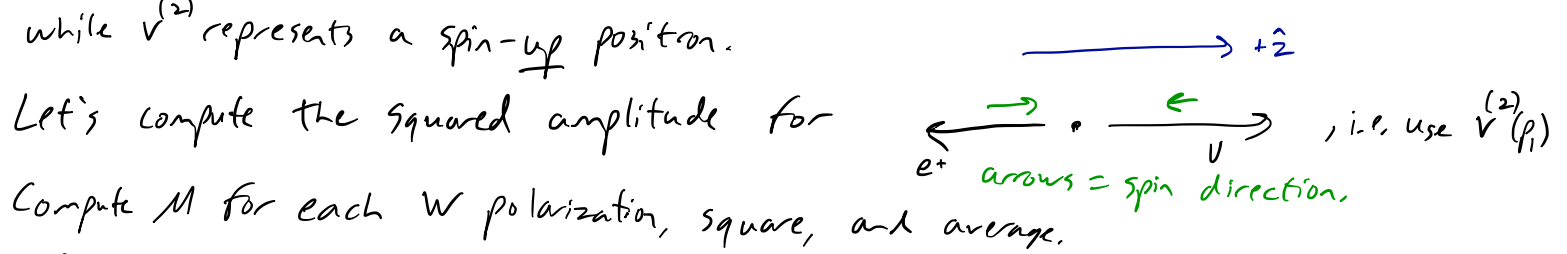 while v⁽²⁾ represents a spin-up positron.
+ẑ
Let's compute the squared amplitude for
e⁺ ν , i.e. use v⁽²⁾(p₁)
arrows = spin direction.
Compute M for each W polarization, square, and average.